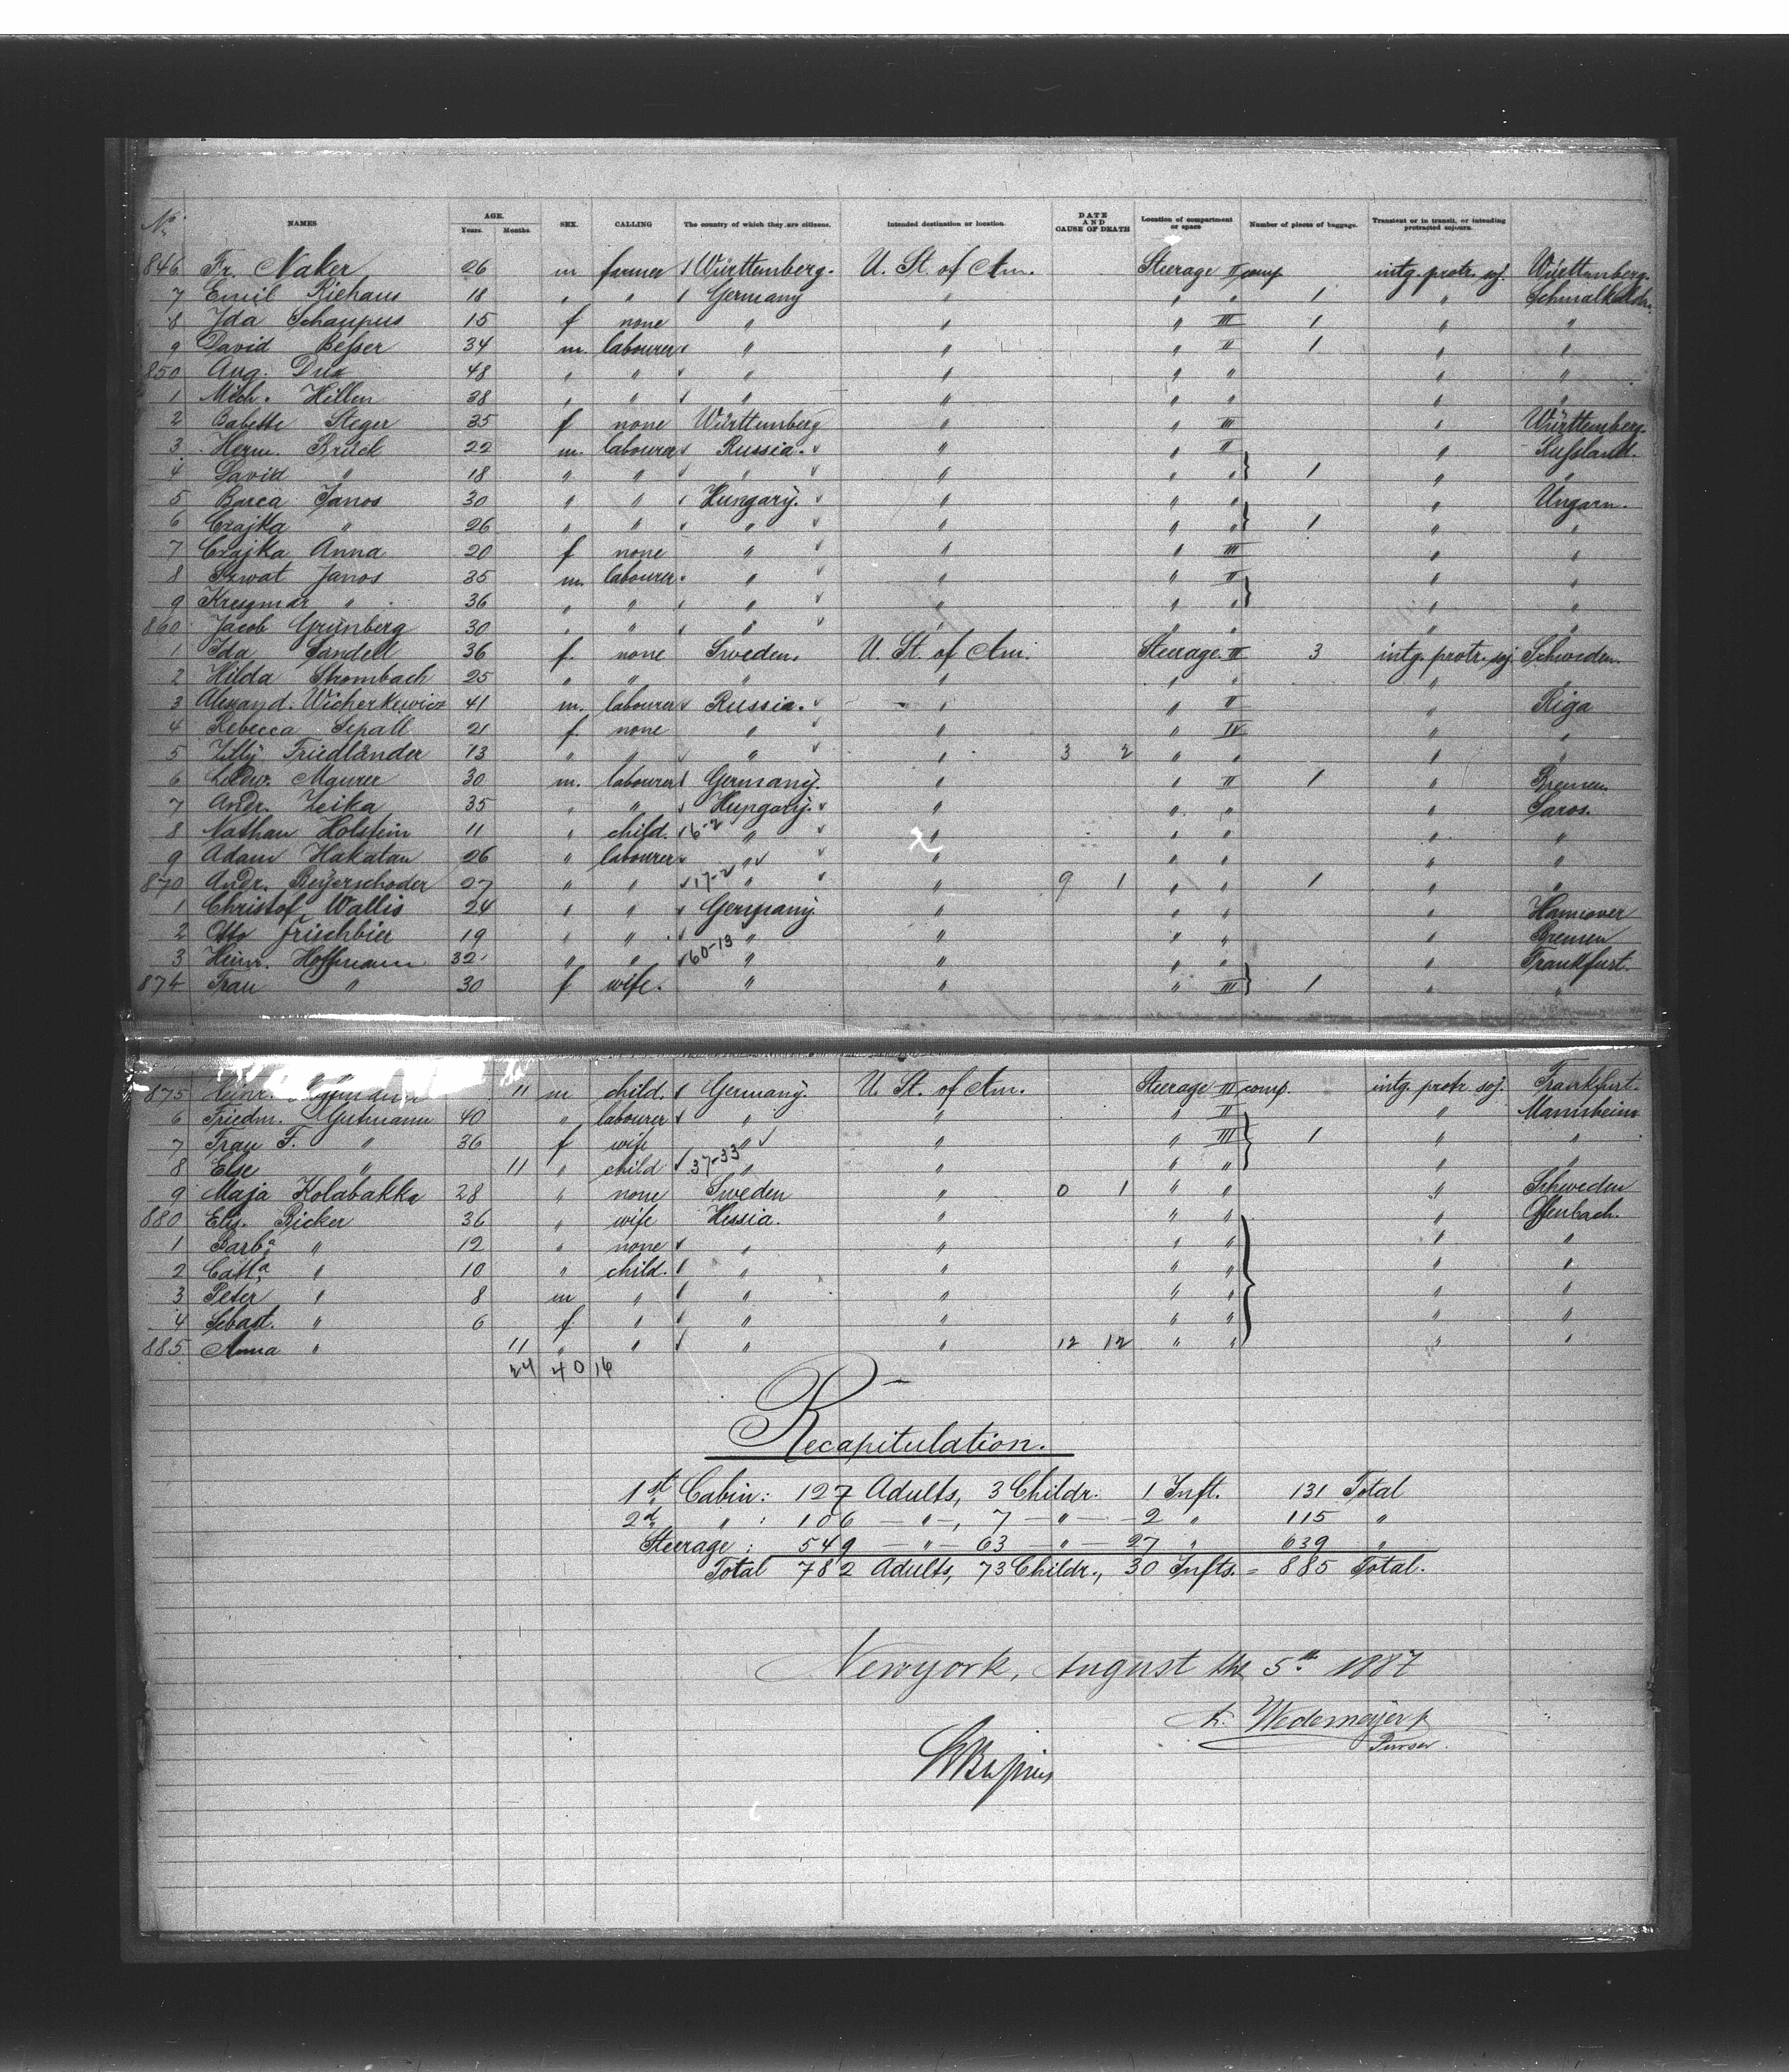 No. NAMES AGE. Years. Months. SEX. CALLING The country of which they are citizens. Intended destination or location. DATE AND CAUSE OF DEATH Location of compartment or space Number of pieces of baggage. Transient or in transit, or intending protracted sojourn.
846 Fr. Naker 26 m farmer Württemberg. U. St. of Am. Steerage II comp intg. protr. soj. Württemberg.
7 Emil Riehaus 18 " " Germany " " " 1 " Schmalkalden.
8 Ida Schaupus 15 f none " " " III 1 " "
9 David Beßer 34 m. labourer " " " II 1 " "
850 Aug. Dux 48 " " " " " " " "
1 Mich. Hillen 38 " " " " " " " "
2 Babette Steger 35 f none Württemberg " " III " Württemberg.
3 Herm. Brück 22 m. labourer Russia. " " II " Rußland.
4 David " 18 " " " " " " 1 " "
5 Barca Janos 30 " " Hungary. " " " " Ungarn.
6 Czajka " 26 " " " " " " 1 " "
7 Czajka Anna 20 f none " " " III " "
8 Szwat Janos 35 m. labourer " " " II " "
9 Kresgmar " 36 " " " " " " " "
860 Jacob Grünberg 30 " " " " " " " "
1 Ida Sandell 36 f. none Sweden. U. St. of Am. Steerage. III 3 intg. protr. soj. Schweden.
2 Hilda Strombach 25 " " " " " " " "
3 Alexand. Wicherkewicz 41 m. labourer Russia. " " II " Riga
4 Rebecca Sepall 21 f. none " " " IV " "
5 Zilly Friedländer 13 " " " " 3 2 " " " "
6 Ludw. Maurer 30 m. labourer Germany. " " II 1 " Bremen.
7 Andr. Zeika 35 " " Hungary. " " " " Saros.
8 Nathan Holstein 11 " child. 6-2 " " " " " "
9 Adam Hakatan 26 " labourer " " " " " "
870 Andr. Beyerschoder 27 " " 17-2 " " 9 1 " " 1 " "
1 Christof Wallis 24 " " Germany. " " " " Hannover
2 Otto Frischbier 19 " " " " " " " Bremen
3 Heinr. Hoffmann 32 " " 60-13 " " " " " Frankfurt.
874 Frau " 30 f wife. " " " III 1 " "
875 Heinr. 11 m child. Germany. U. St. of Am. Steerage III comp. intg. protr. soj. Frankfurt.
6 Friedm. Gutmann 40 " labourer " " " II " Mannheim
7 Frau F. " 36 f wife " " " III 1 " "
8 Else " 11 " child 37-33 " " " " " "
9 Maja Kolabakka 28 " none Sweden " 0 1 " " " Schweden
880 Elis. Ricker 36 " wife Hessia. " " " " Offenbach.
1 Barba " 12 " none " " " " " "
2 Catha " 10 " child. " " " " " "
3 Peter " 8 m " " " " " " "
4 Sebast. " 6 f " " " " " " "
885 Anna " 11 " " " " 12 12 " " " "
24 40 16
Recapitulation.
1st Cabin: 127 Adults, 3 Childr. 1 Inft. 131 Total
2d " : 106 — " —, 7 — " — 2 " 115 "
Steerage : 549 — " — 63 — " — 27 " 639 "
Total 782 Adults, 73 Childr., 30 Infts. = 885 Total.
Newyork, August the 5th 1887
Wedemeyer
Purser.